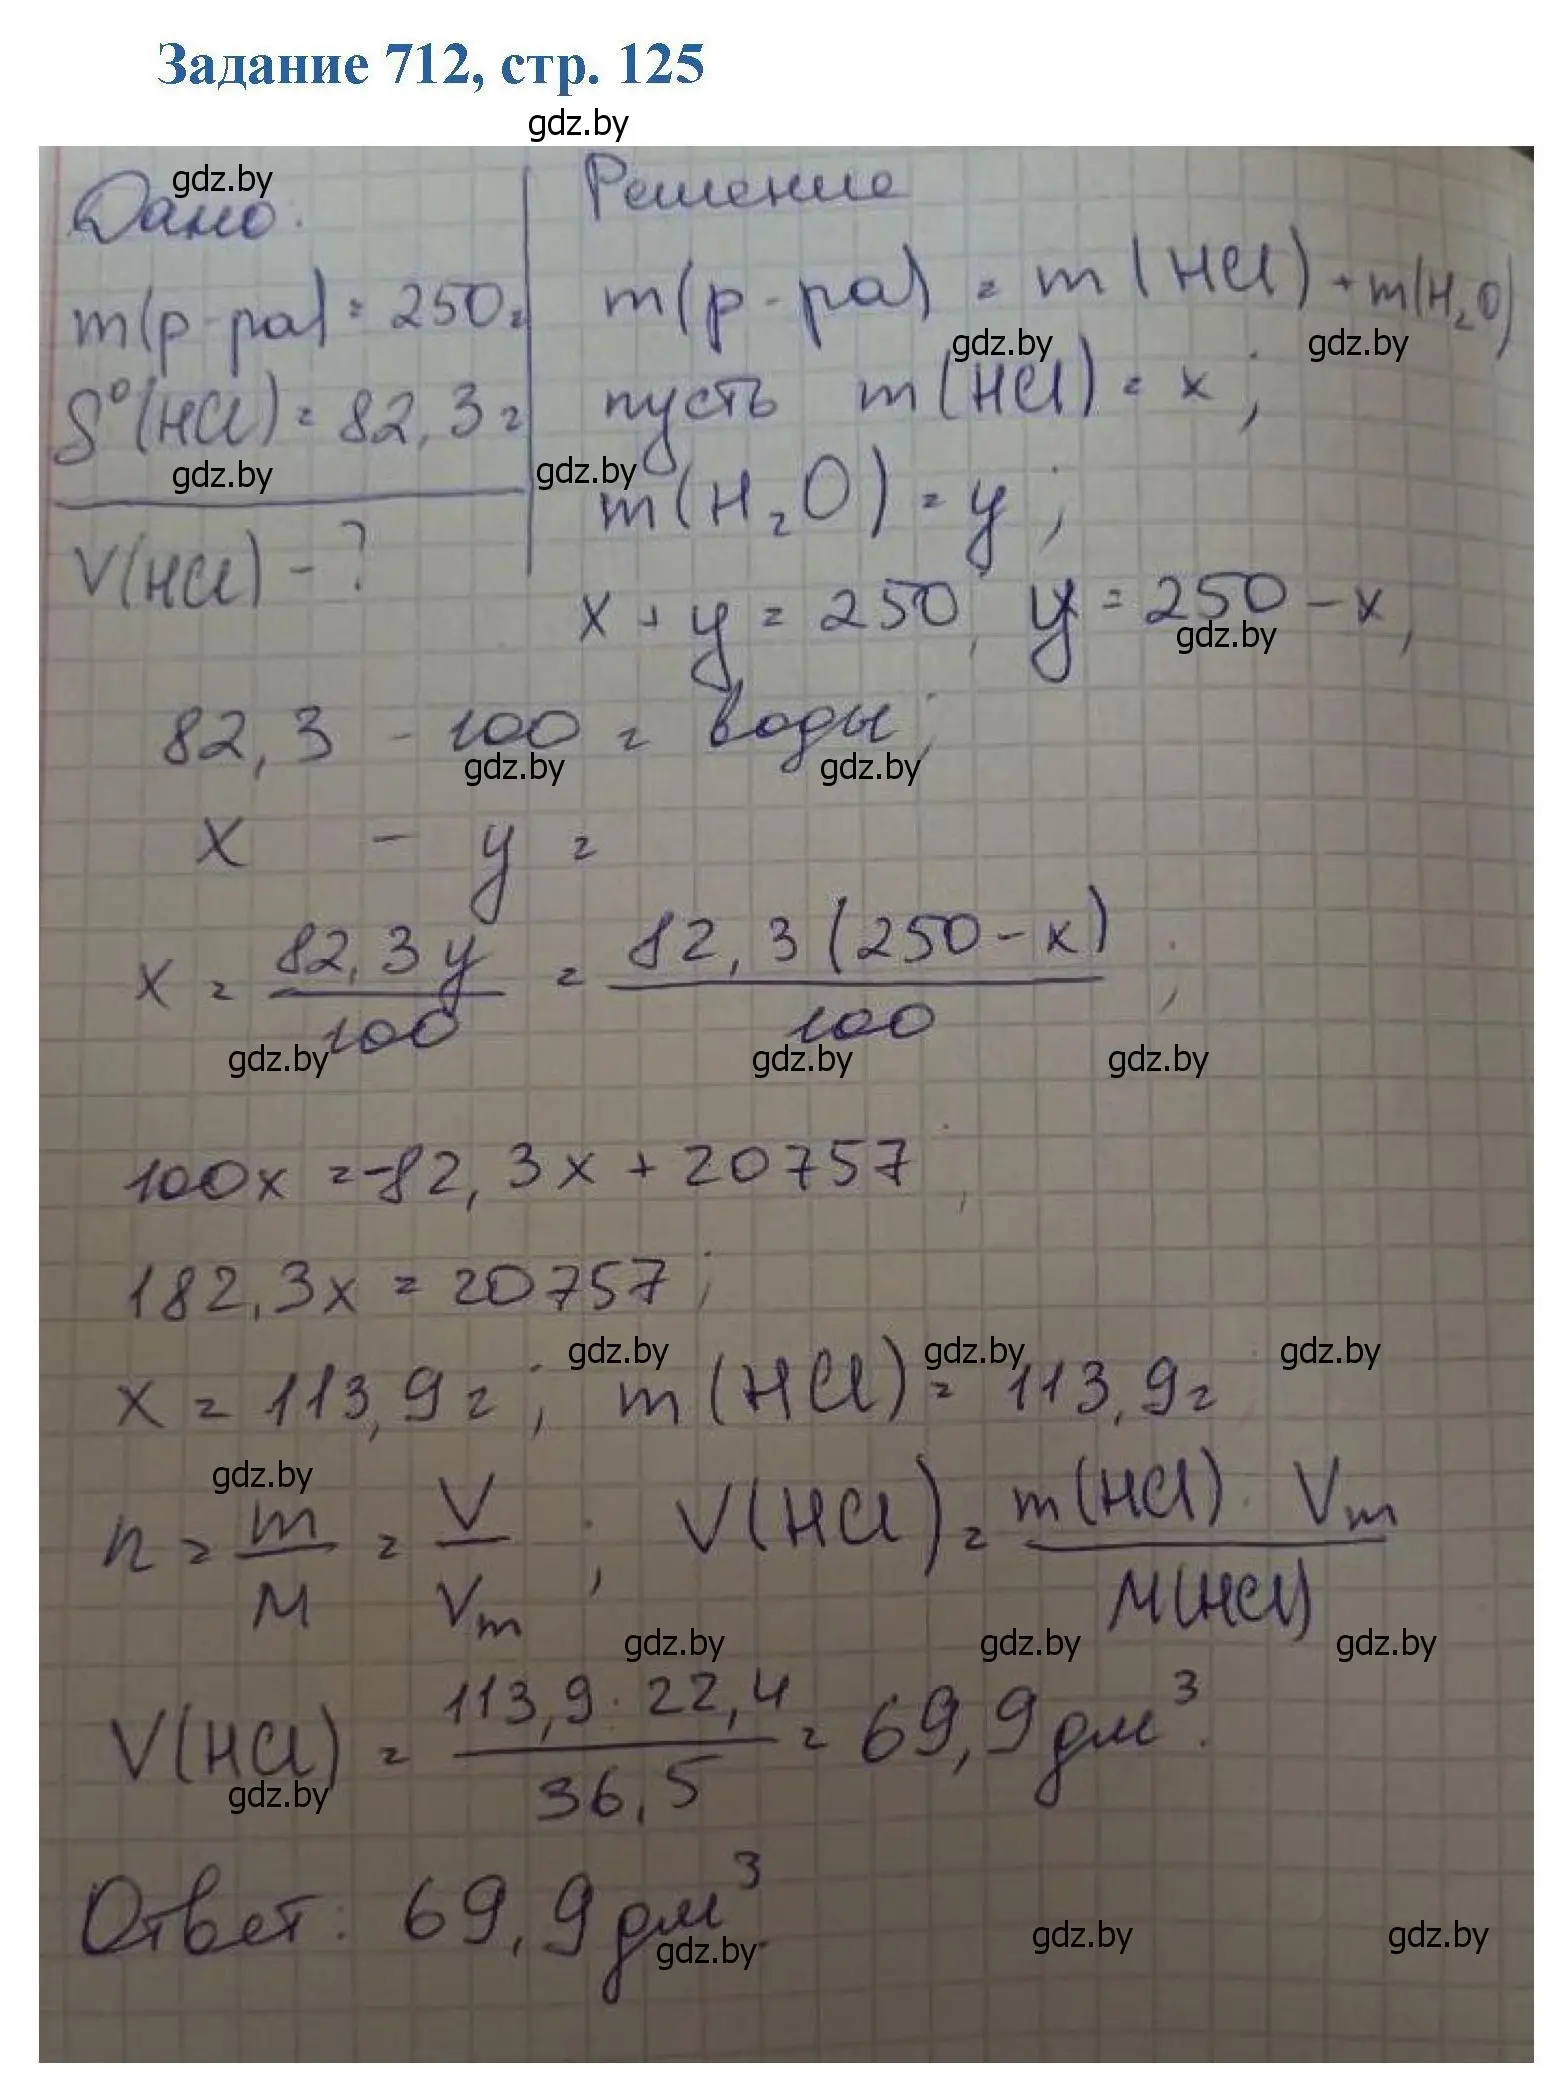 Задание 712, стр. 125
gdz.by
gdz.by
Дано:
m(р-ра) = 250г
S⁰(HCl) = 82,3г
gdz.by
V(HCl) - ?
Решение
m(р-ра) = m(HCl) + m(H₂O)
gdz.by gdz.by
пусть m(HCl) = x;
gdz.by
m(H₂O) = y;
x + y = 250; y = 250 - x;
gdz.by
82,3 - 100 г воды;
gdz.by gdz.by
x - y г
x = 82,3y/100 = 82,3(250-x)/100;
gdz.by gdz.by gdz.by
100x = -82,3x + 20757;
182,3x = 20757;
gdz.by gdz.by gdz.by
x = 113,9г; m(HCl) = 113,9г
gdz.by
n = m/M = V/Vm; V(HCl) = m(HCl) · Vm/M(HCl)
gdz.by gdz.by gdz.by
V(HCl) = 113,9 · 22,4/36,5 = 69,9 дм³.
gdz.by
Ответ: 69,9 дм³.
gdz.by gdz.by gdz.by